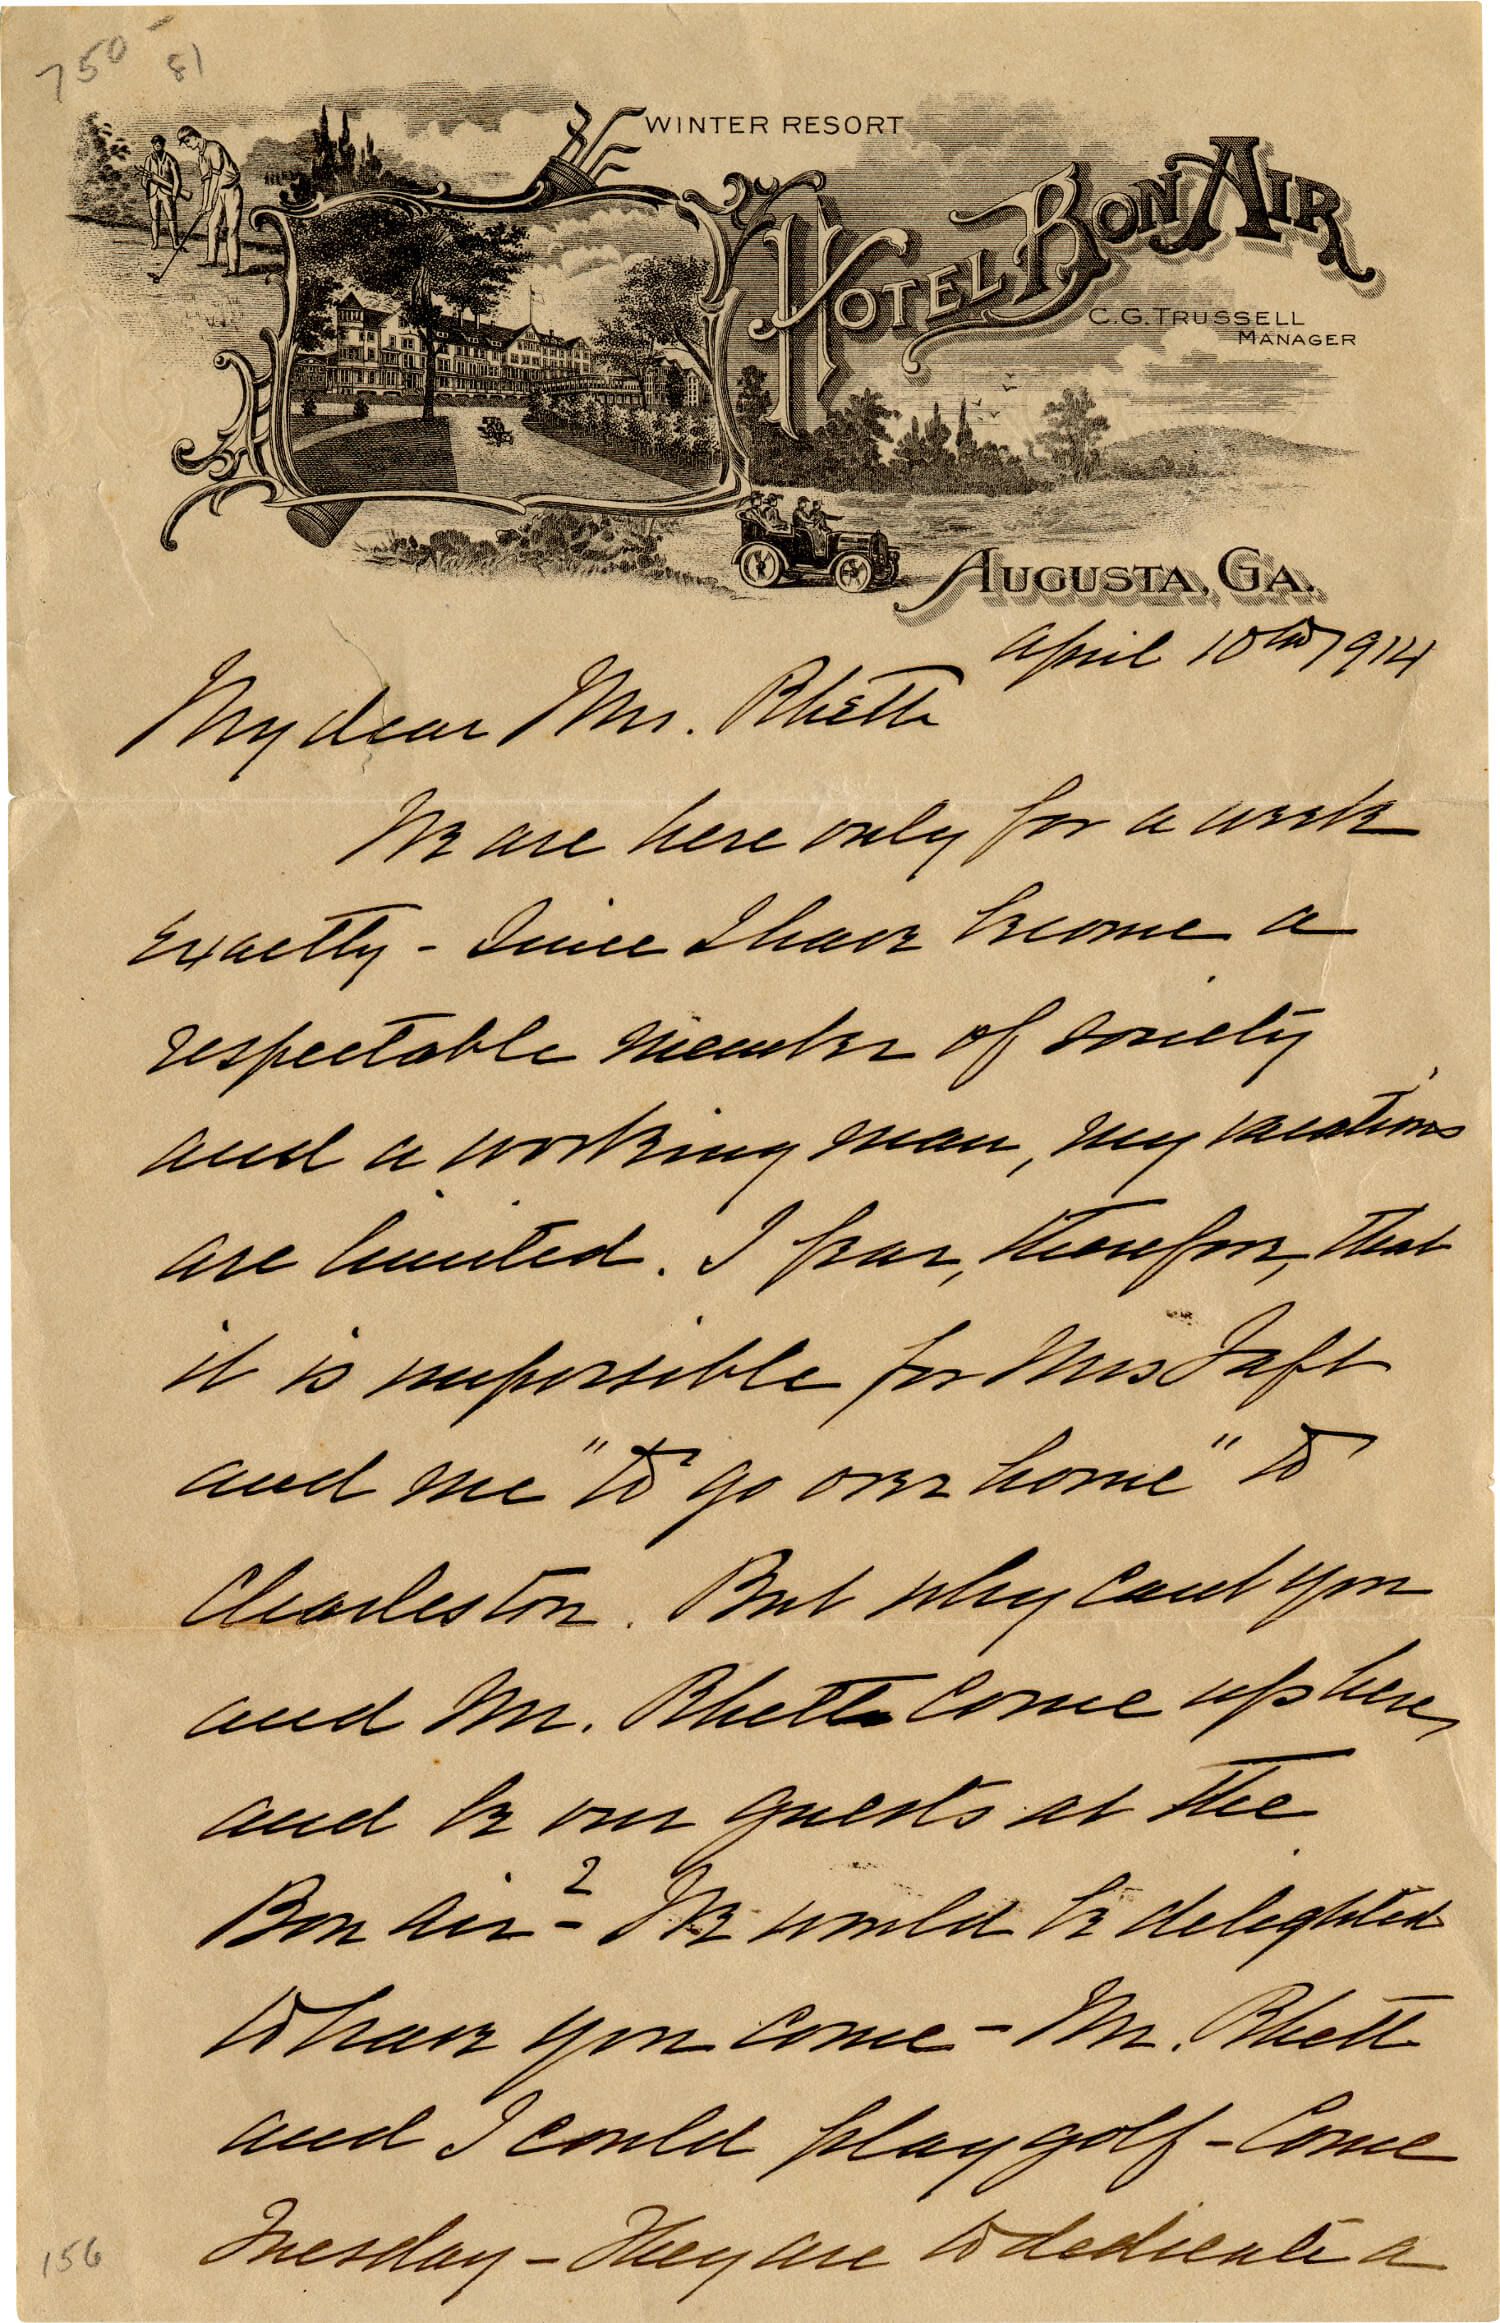 750-
81
WINTER RESORT
HOTEL BON AIR
C.G. TRUSSELL
MANAGER
AUGUSTA, GA.
April 10th 1914
My dear Mrs. Rhett
We are here only for a week
exactly - Since I have become a
respectable member of society
and a working man, my vacations
are limited. I fear, therefore, that
it is impossible for Mrs Taft
and me "to go over home" to
Charleston. But why cant you
and Mr. Rhett come up here,
and be our guests at the
Bon Air-? We would be delighted
to have you come - Mr. Rhett
and I could play golf - Come
Tuesday - They are to dedicate a
156